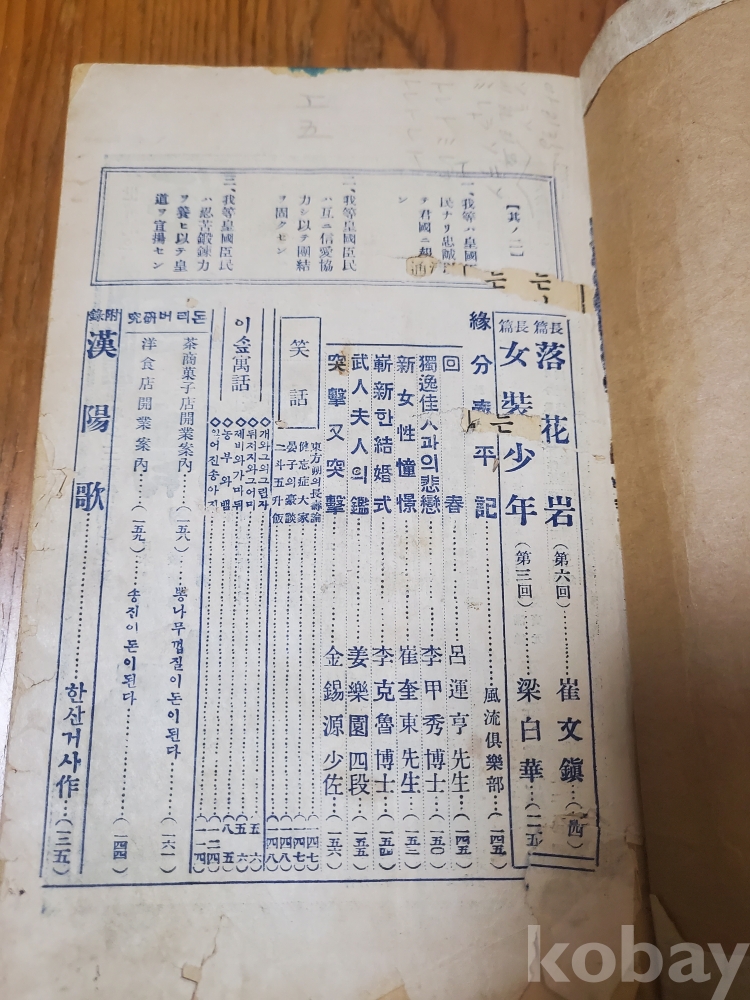 【其ノ二】
一、我等ハ皇國
民ナリ忠誠
テ君國ニ
ン
二、我等皇國臣民
ハ互ニ信愛協
力シ以テ團結
ヲ固クセン
三、我等皇國臣民
ハ忍苦鍛鍊力
ヲ養ヒ以テ皇
道ヲ宣揚セン
長篇 落花岩 (第六回) 崔文鎭
長篇 女裝少年 (第三回) 梁白華
緣分 平記 風流俱樂部 (一四五)
回春 呂運亨 先生 (一四五)
獨逸佳人과의悲戀 李甲秀 博士 (一五〇)
新女性憧憬 崔奎東 先生 (一五二)
嶄新한結婚式 李克魯 博士 (一五四)
武人夫人의鑑 姜樂園 四段 (一五五)
突擊又突擊 金錫源 少佐 (一五六)
笑話
東方朔의長壽論 (一四七)
健忘症大家 (一四七)
晏子의豪談 (一四八)
二斗五升飯 (一四八)
이솝寓話
◇개와그의그림자
◇뒤지지와그어미
◇제비와가마귀
◇농부와뱀
◇잃어진송아지
돈데버研究
茶商菓子店開業案內 (一五八)
뽕나무껍질이돈이된다 (一六一)
洋食店開業案內 (一五九)
송진이돈이된다 (一四四)
附錄 漢陽歌 한산거사作 (一三五)
kobay